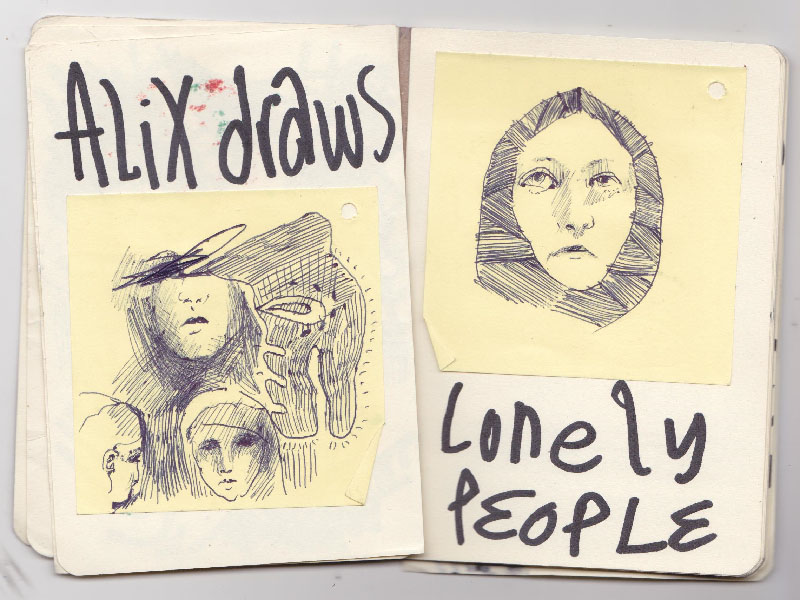 ALiX draws
Lonely
PEOPLE